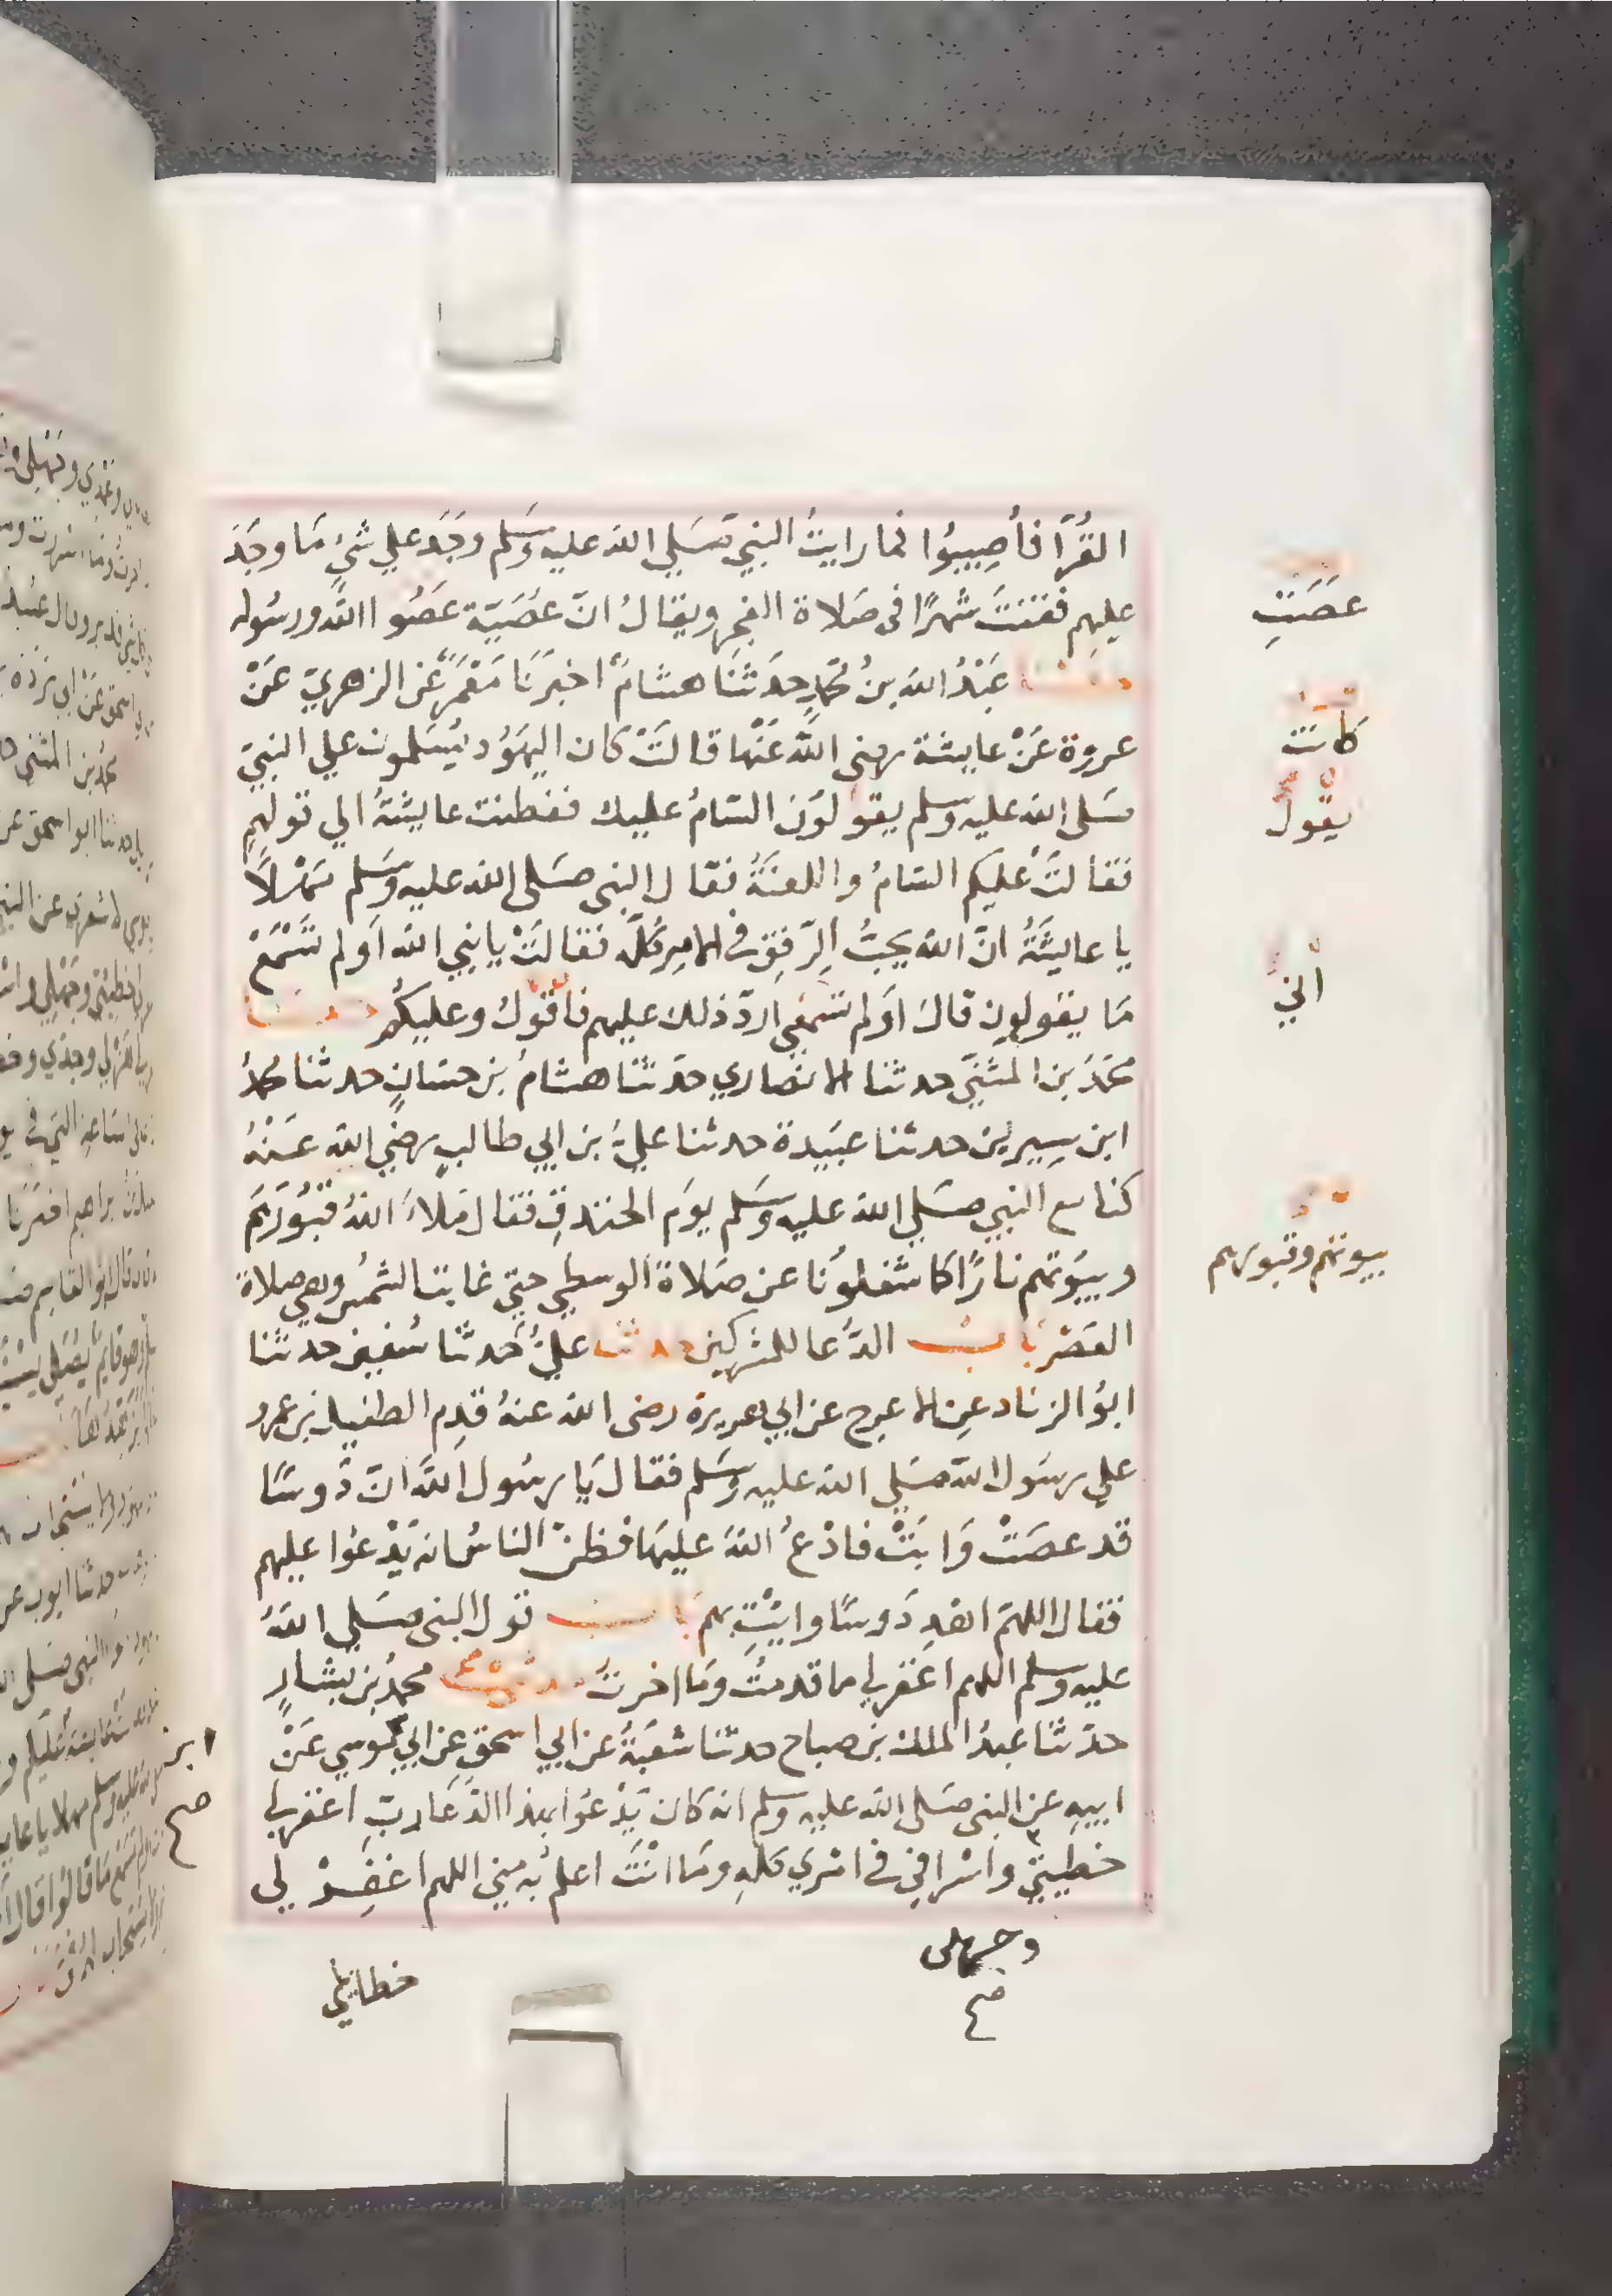 القُرَّا فأُصِيبُوا فما رايتُ النبيّ صَلي الله عليه وسَلم وَجَدَ علي شيءٍ مَا وجَدَ
عليهِم فقنتَ شهرًا في صَلاة الفجر ويقالُ انّ عُصَيّة عَصَوا اللهَ ورسُوله
حدثنا عَبْدُ الله بنُ محمّدٍ حدّثنَا هشامٌ اخبَرَنَا مَعْمَرٌ عَن الزهريّ عَنْ
عروة عَنْ عايشة رضي اللهُ عَنْها قالتْ كان اليهُود يُسَلمون علي النبيّ
صَلي الله عليه وسلم يقولوُن السّامُ عليك ففطنت عايشةُ الي قولهِم
فقالتْ عليكم السّامُ واللعنَةُ فقال النبي صَلي الله عليه وسَلم مَهْلاً
يا عايشَةُ انّ الله يحبُّ الرّفق في الامر كُلّه فقالتْ يا نبي الله اوَلم تَسْمَعْ
مَا يقولون قالَ اوَلم تسْمَعي اردّ ذلك عليهم فاَقولُ وعليكُم حدثنا
محمّدُ بن المثنيّ حدثنا الانصاري حدّثنا هشامُ بن حسّانٍ حدثنا محمّدُ
ابن سِيرين حدثنا عَبيدة حدثنا عليُّ بن ابي طالبٍ رضي الله عَنْهُ
كنا مع النبي صَلي الله عليه وسَلم يومَ الخندقِ فقال مَلاءَ اللهُ قبُورَهم
وبيُوتهم نارًا كما شغلونُا عن صَلاة الوسطي حتيّ غابت الشمسُ وهي صلاة
العَصْر باب الدّعا للمشركين حدثنا عليٌّ حَدثنا سُفين حدثنا
ابوُ الزناد عن الاعرج عن ابي هريرة رضي الله عنهُ قدِم الطفيل بن عمرو
علي رسَول الله صَلي الله عليه وسَلم فقالَ يَا رسُول اللهِ انّ دَوسًا
قد عصَتْ وَابَتْ فادْعُ اللهَ عليهَا فظنّ الناسُ انه يَدْعُوا عليهم
فقال اللهمّ اهْدِ دَوسًا وايْتِ بهم باب قول النبي صَلي اللهُ
عليه وسلم اللهم اغفر لي ما قدمتُ ومَا اخرتُ حدثنا محمدُ بن بشارٍ
حدّثنا عبدُ الملك بن صباح حدثنا شعبَةُ عن ابي اسحق عن ابي موسي عَنْ
ابيهِ عن النبي صَلي الله عليه وسلم انه كان يَدْعُوا بهذا الدّعَا ربّ اغفر لي
خطيئتي واسْرافي في امْري كلهِ ومَا انْتَ اعلمُ به مني اللهم اغفِرْ لي
عصَتِ
كانت
يقول
اني
بيوتهم وقبورهم
ابن
صح
وجهلي
صح
خطاياي